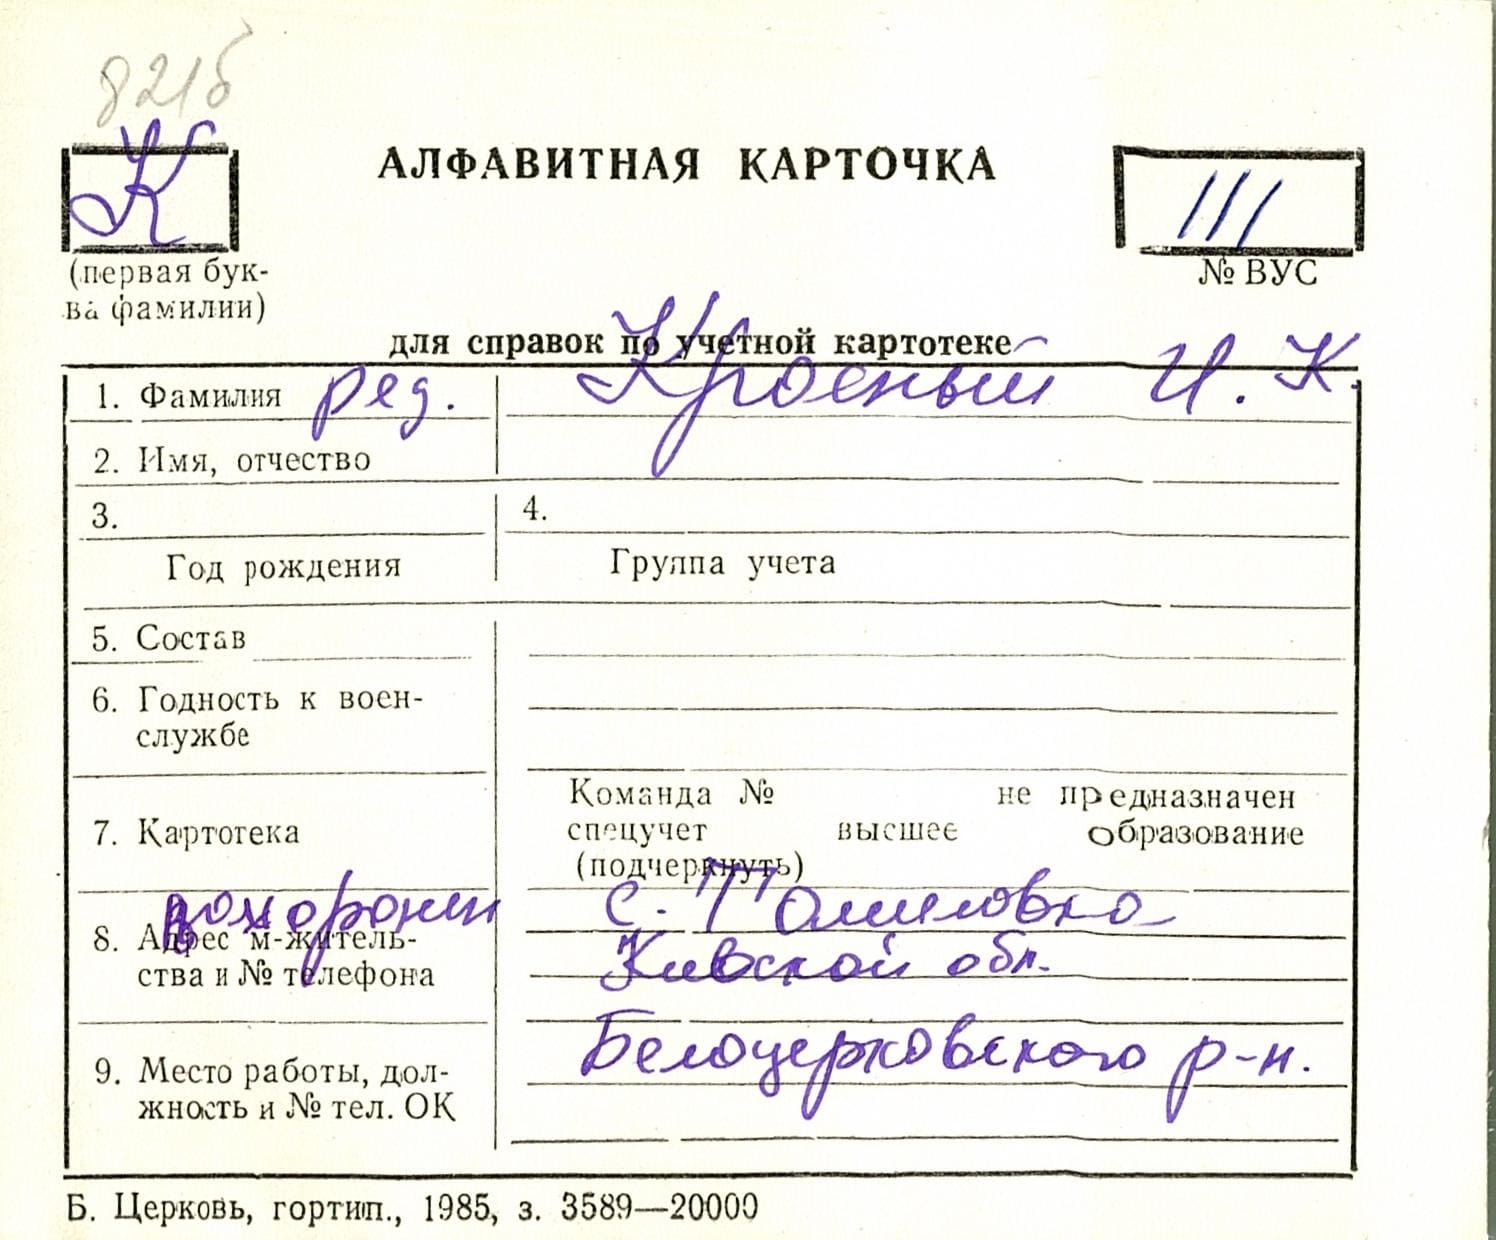 8215
К
АЛФАВИТНАЯ КАРТОЧКА
///
(первая бук-
ва фамилии)
№ ВУС
для справок по учетной картотеке
1. Фамилия ряд. Красный И. К.
2. Имя, отчество
3.
4.
Год рождения
Группа учета
5. Состав
6. Годность к воен-
службе
7. Картотека
Команда № не предназначен
спецучет высшее образование
(подчеркнуть)
похоронен с. Томиловка
8. Адрес м-житель-
ства и № телефона
Киевской обл.
Белоцерковского р-н.
9. Место работы, дол-
жность и № тел. ОК
Б. Церковь, гортип., 1985, з. 3589—20000